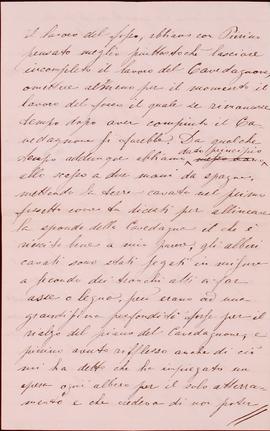 il lavoro del fosso, abbiamo con Pierino
pensato meglio piuttosto che lasciare
incompleto il lavoro del Cavedagnone
omettere almeno per il momento il
lavoro del fosso il quale se rimanesse
tempo dopo aver compiuto il Ca-
vedagnone si farebbe. Da qualche
tempo addunque abbiamo dato principio
allo scopo a due mani da spagna,
mettendo la terra cavata nel primo
fossetto come tu dicesti per allineare
la sponda della Cavedagna il che è
riuscito bene a mio parere, gli alberi
cavati sono stati segati in misura
a secondo dei tronchi atti a far
asse o legna, però erano ad una
grandissima profondità forse per il
rialzo del piano del Cavedagnone, e
Pierino avuto riflesso anche di ciò
mi ha detto che ha impiegato un
opera ogni albero per il solo atterra-
mento e che credeva di non poter